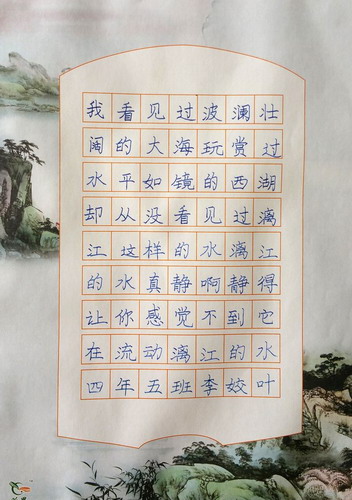 我看见过波澜壮
阔的大海玩赏过
水平如镜的西湖
却从没看见过漓
江这样的水漓江
的水真静啊静得
让你感觉不到它
在流动漓江的水
四年五班李姣叶